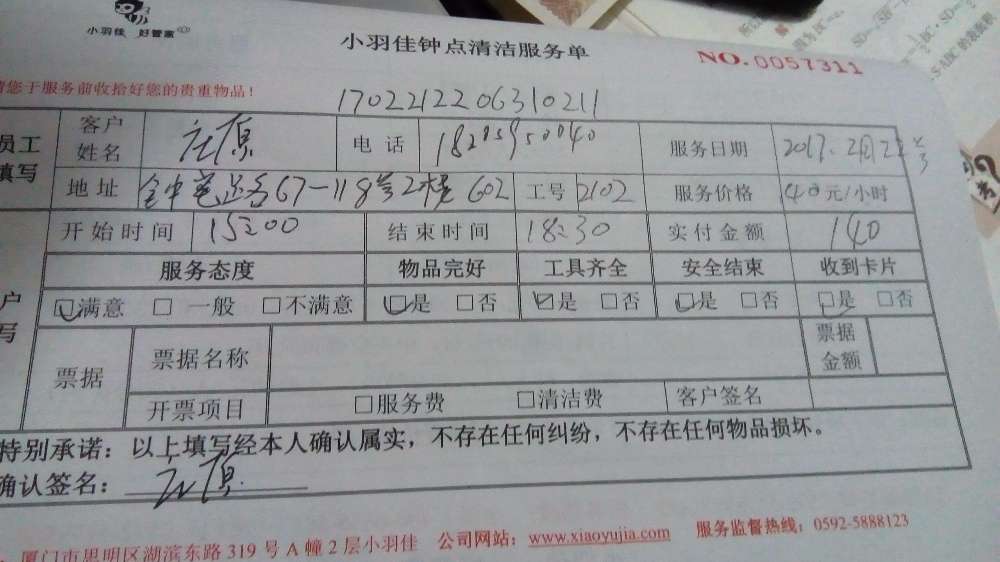 小羽佳 好管家
小羽佳钟点清洁服务单
NO.0057311
请您于服务前收拾好您的贵重物品!
1702212206310211
员工填写 客户姓名 庄原 电话 18205950040 服务日期 2017.2月22
地址 67-118号2楼602 工号 2102 服务价格 40元/小时
开始时间 15:00 结束时间 18:30 实付金额 140
服务态度 物品完好 工具齐全 安全结束 收到卡片
户写 满意 一般 不满意 是 否 是 否 是 否 是 否
票据 票据名称 票据金额
开票项目 服务费 清洁费 客户签名
特别承诺:以上填写经本人确认属实,不存在任何纠纷,不存在任何物品损坏。
确认签名: 庄原
厦门市思明区湖滨东路 319 号 A 幢 2 层小羽佳 公司网站:www.xiaoyujia.com 服务监督热线:0592-5888123